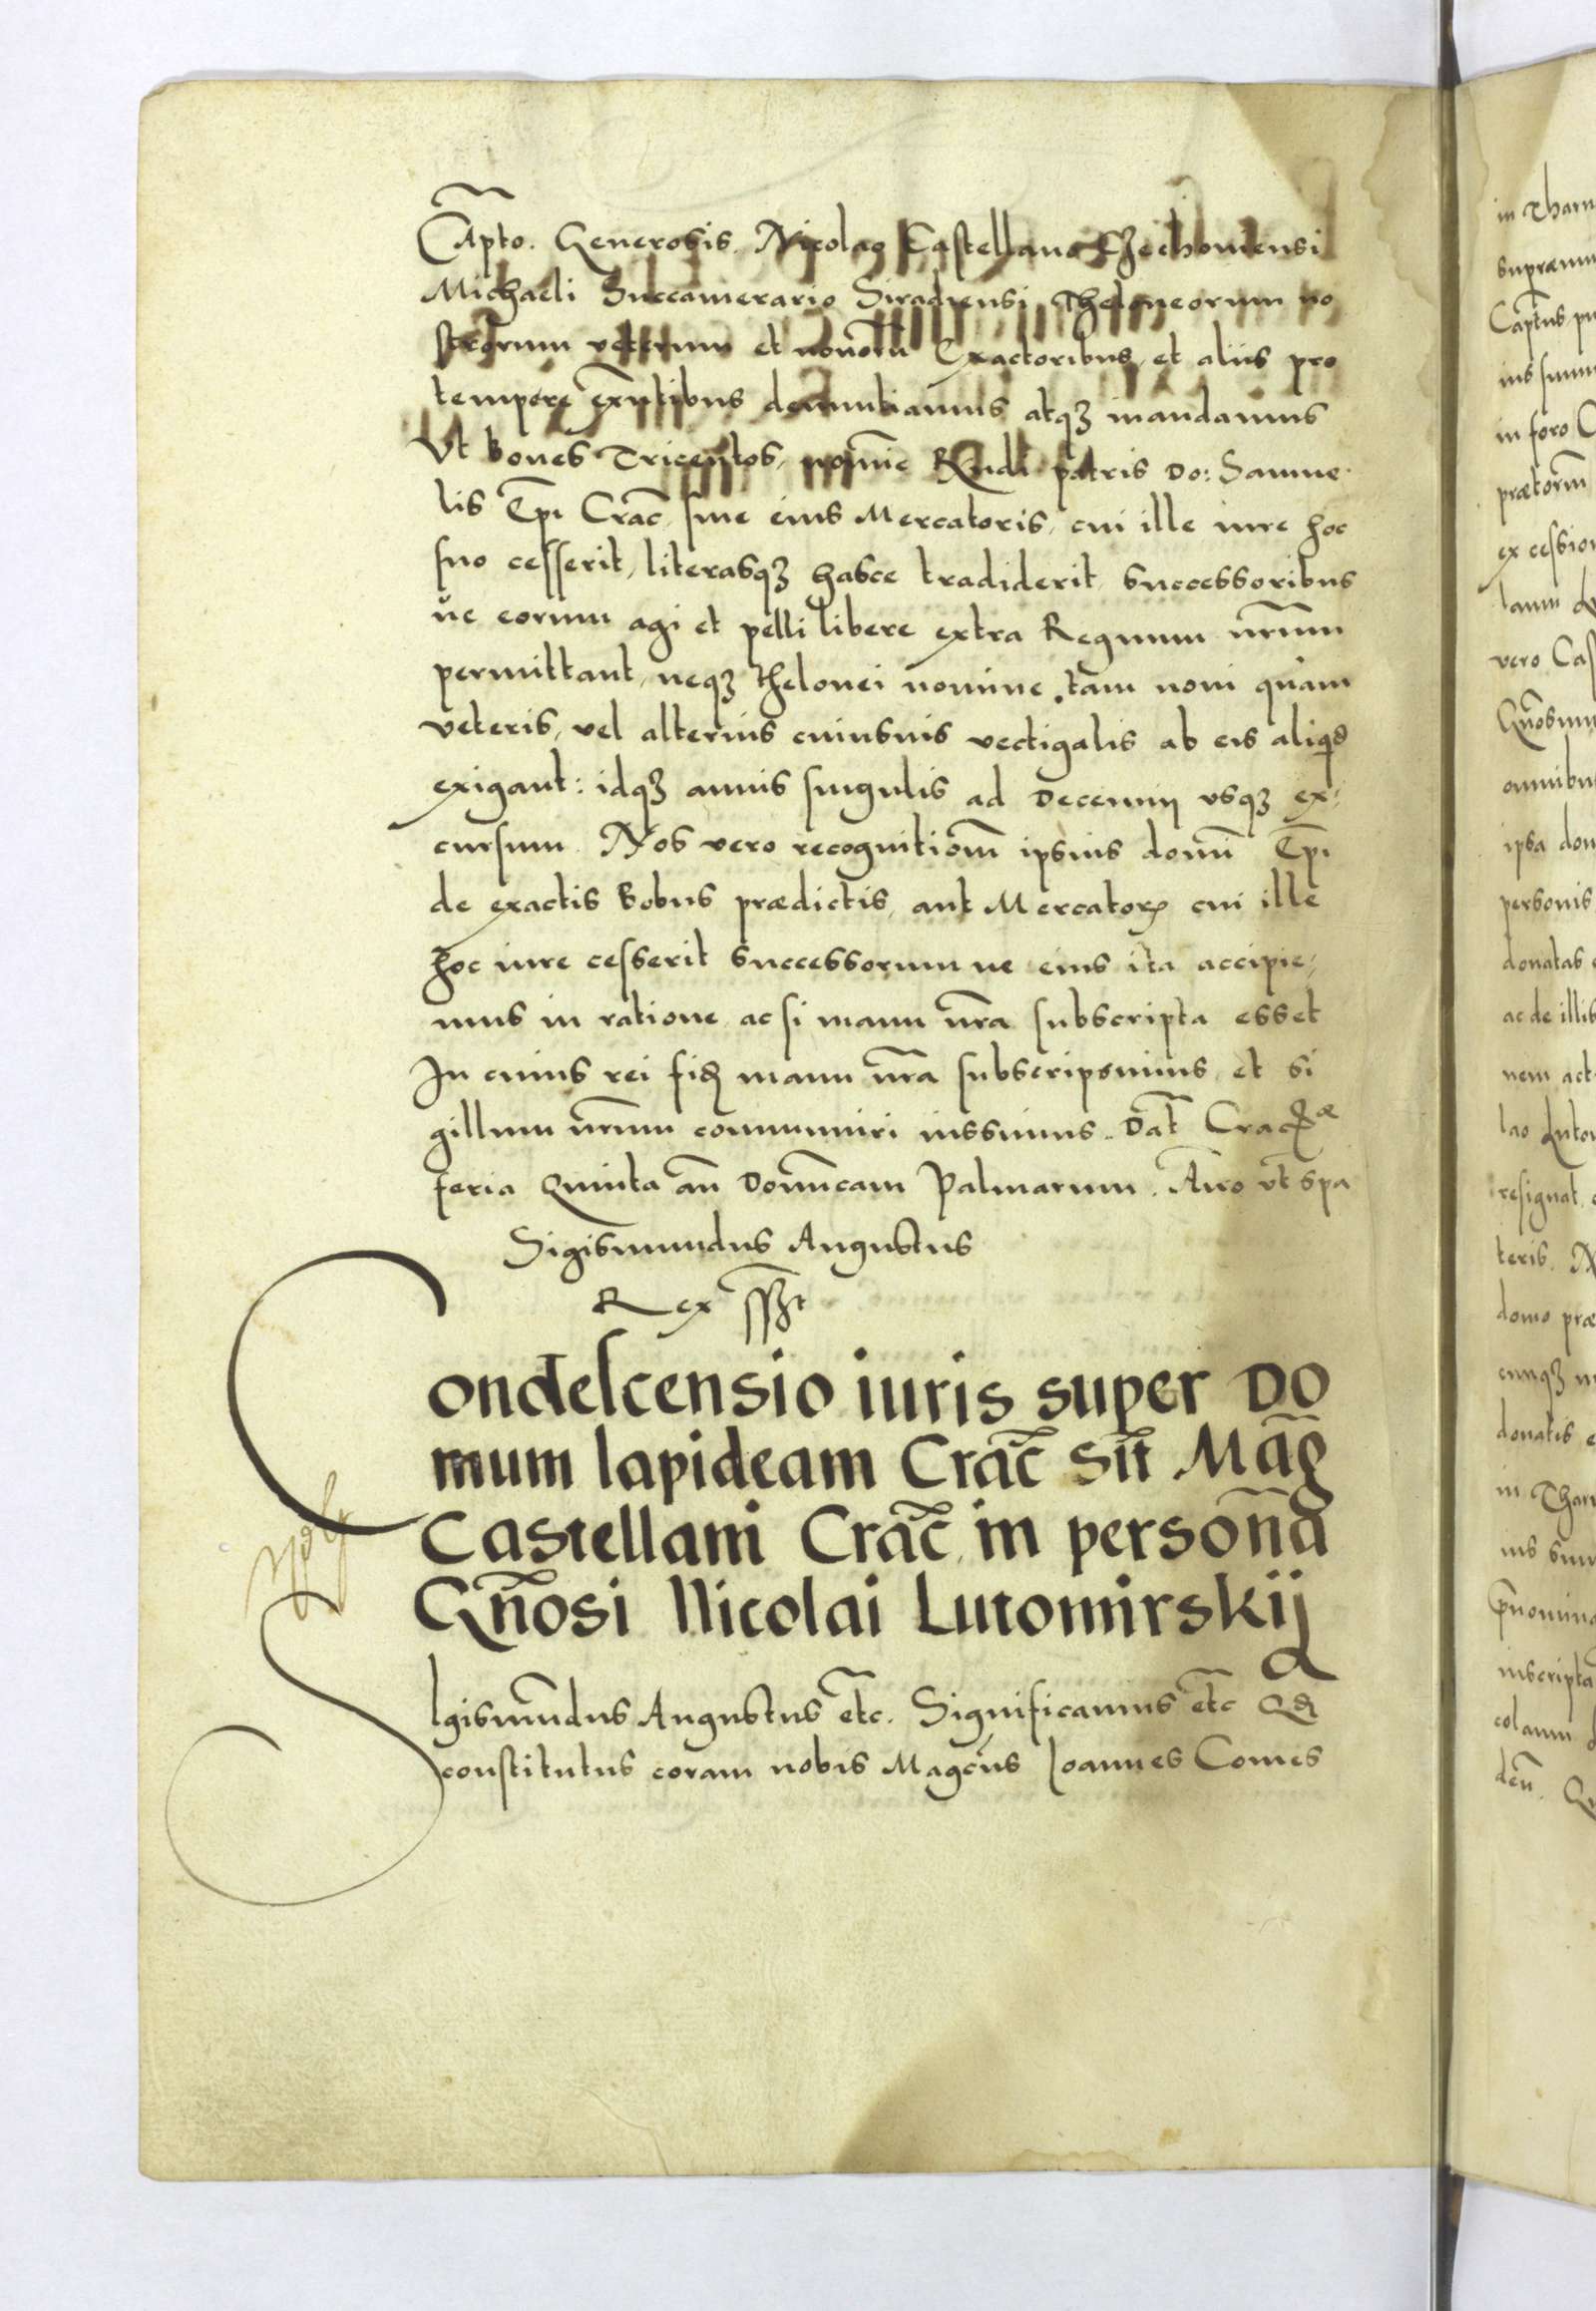 Capto. Generosis. Nicolao Castellano Czechoviensi
Michaeli Succamerario Siradiensi Theloneorum no
strorum veterum et novorũ Exactoribus, et aliis pro
tempore exñtibus denuntiamus atqꝫ mandamus
Vt boves Tricentos, nomĩe Rñdi patris Do: Samue
lis Epĩ Crac̃ sive eius Mercatoris, cui ille iure hoc
suo cesserit, literasqꝫ hasce tradiderit, successoribus
ve eorum agi et pelli libere extra Regnum nr̃um
permittant, neqꝫ thelonei nomine tam novi quàm
veteris, vel alterius cuiusvis vectigalis ab eis aliqid
exigant: idqꝫ annis singulis ad Decennij vsqꝫ ex:
cursum. Nos vero recognitiom̃ ipsius domĩ Epĩ
de exactis Bobus prædictis, aut Mercatorꝭ cui ille
hoc iure cesserit successorum ve eius ita accipie,
mus in ratione ac si manu nr̃a subscripta esset
In cuius rei fidꝭ manu nr̃a subscripsimus, et si
gillum nr̃um communiri iussimus. Dat̃ Cracꝭæ
feria Quinta añ Domĩcam Palmarum. Anno vt̃ spa
Sigismundus Augustus
Rex sszt
Condescensio iuris super Do
mum lapideam Crac̃ sit̃ Mãg
Castellani Crac̃ in personã
Gñosi Nicolai Lutomirskij
SIgismũdus Augustus etc̃. Significamus etc̃ Qd
constitutus coram nobis Magc̃us Ioannes Comes
in Tharn
supremu
Captus, pu
in foro C
prætorim̃
ex cession
vero Cas
omnibu
ipsa dom
personis
donatas
ac de illis
nem act
lao Luto
resignat
teris. N
domo præ
cunqꝫ
donatis e
in Thar
inscripta